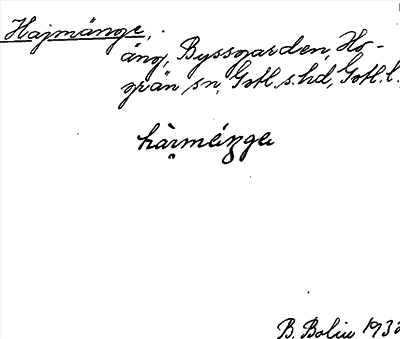 Hajmänge,
äng, Byssgarden, Ho-
grän sn, Gotl. s. hd, Gotl. l.
B. Bolin 193